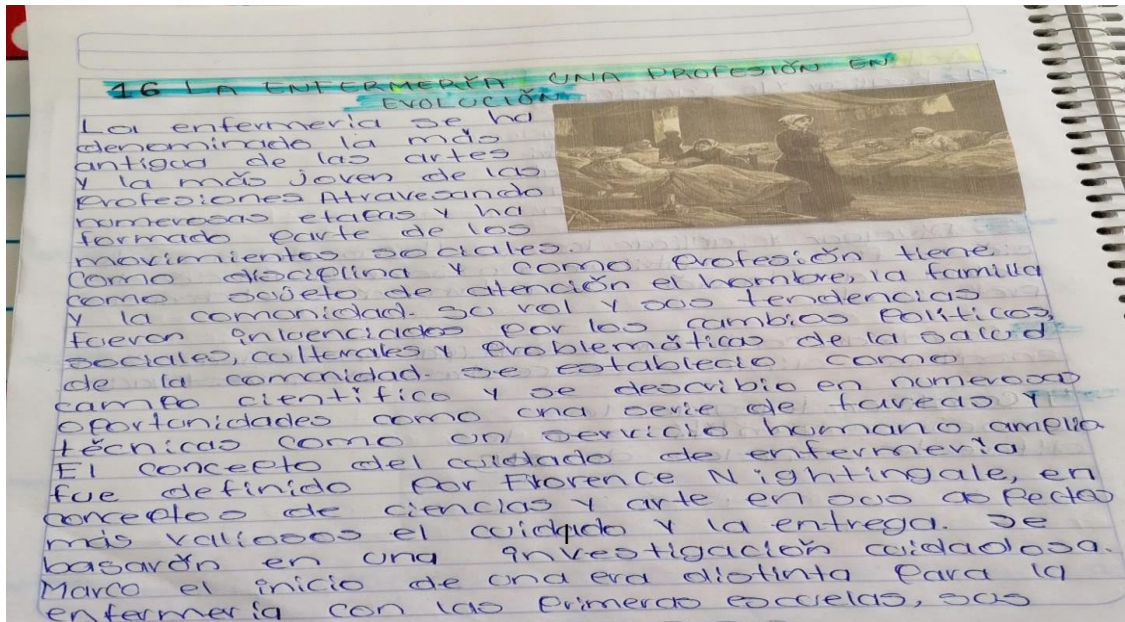 16 LA ENFERMERÍA UNA PROFESIÓN EN
EVOLUCIÓN
La enfermería se ha
denominado la más
antigua de las artes
y la más joven de las
profesiones Atravesando
numerosas etapas y ha
formado parte de los
movimientos sociales.
como disciplina y como profesión tiene
como sujeto de atención el hombre, la familia
y la comunidad. su rol y sus tendencias
fueron inluenciados por los cambios políticos,
sociales, culturales y problemáticas de la salud
de la comunidad. se establecio como
campo científico y se describio en numerosas
oportunidades como una serie de tareas y
técnicas como un servicio humano amplio.
El concepto del cuidado de enfermería
fue definido por Florence Nightingale, en
conceptos de ciencias y arte en sus aspectos
más valiosos el cuidado y la entrega. se
basarón en una investigación cuidadosa.
Marco el inicio de una era distinta para la
enfermería con las primeras escuelas, sus